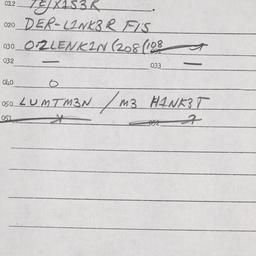 012 TEJX1S3R
020 DER-L1NK3R FIS
030 021LENK1N (208 (108
032 — 033 —
040 O
050 LUMTM3N / M3 H1NK3T
051